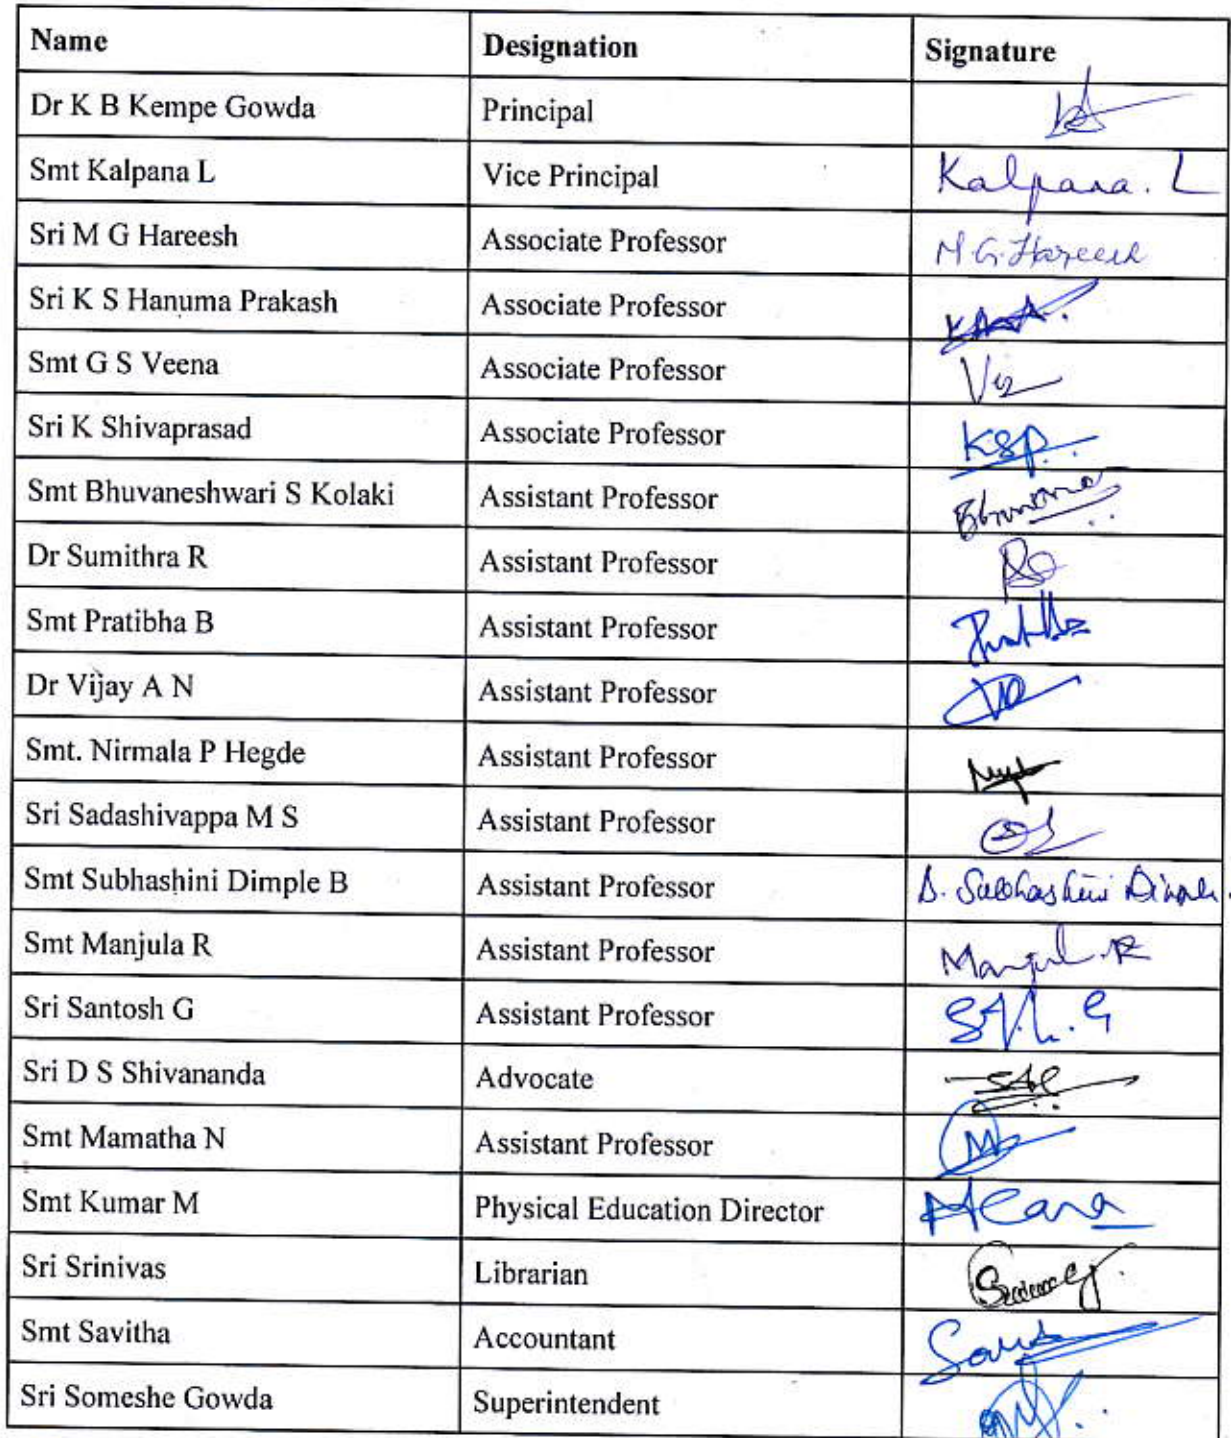 Name Designation Signature
Dr K B Kempe Gowda Principal
Smt Kalpana L Vice Principal Kalpana. L
Sri M G Hareesh Associate Professor M.G. Hareesh
Sri K S Hanuma Prakash Associate Professor
Smt G S Veena Associate Professor
Sri K Shivaprasad Associate Professor KSP
Smt Bhuvaneshwari S Kolaki Assistant Professor
Dr Sumithra R Assistant Professor
Smt Pratibha B Assistant Professor
Dr Vijay A N Assistant Professor
Smt. Nirmala P Hegde Assistant Professor
Sri Sadashivappa M S Assistant Professor
Smt Subhashini Dimple B Assistant Professor B. Subhashini Dimple.
Smt Manjula R Assistant Professor
Sri Santosh G Assistant Professor
Sri D S Shivananda Advocate
Smt Mamatha N Assistant Professor
Smt Kumar M Physical Education Director
Sri Srinivas Librarian
Smt Savitha Accountant
Sri Someshe Gowda Superintendent